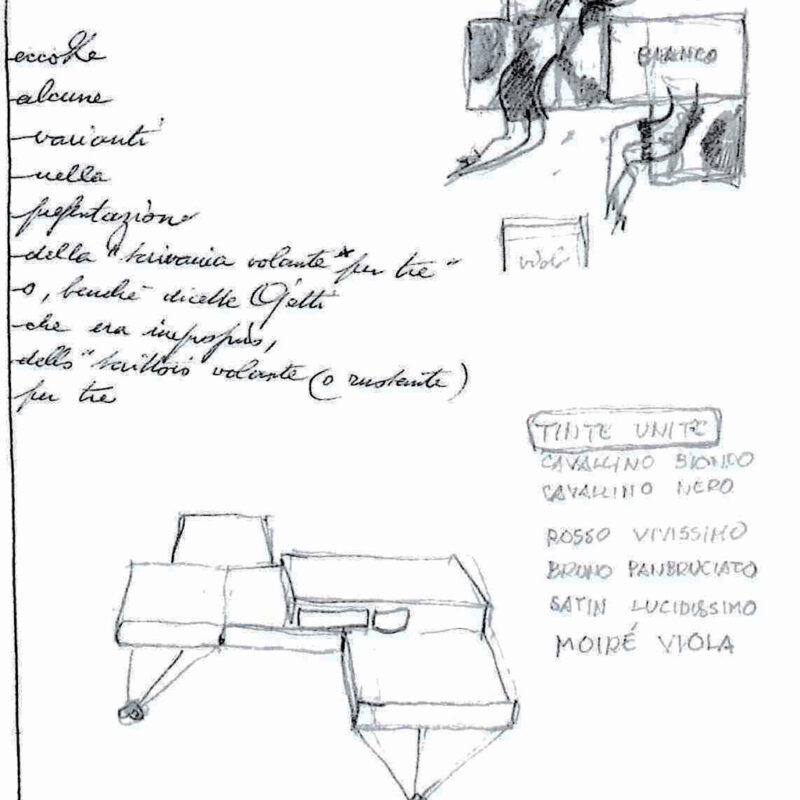 eccole
alcune
varianti
nella
presentazione
della "scrivania volante" per tre"
o, benché dicesse Ojetti
che era improprio,
dello "scrittoio volante (o ruotante)
per tre
BIANCO
viola
TINTE UNITE
CAVALLINO BIONDO
CAVALLINO NERO
ROSSO VIVISSIMO
BRUNO PANBRUCIATO
SATIN LUCIDISSIMO
MOIRÉ VIOLA